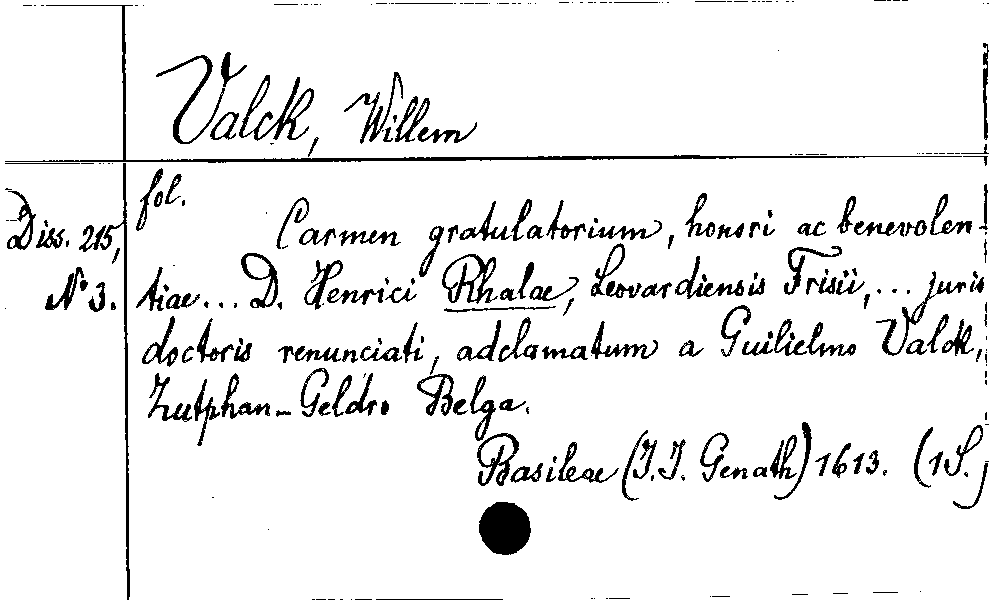 Valck, Willem
fol.
Diss. 215,
N° 3.
Carmen gratulatorium, honori ac benevolen-
tiae... D. Henrici Rhalae, Leovardiensis Frisii,... juris
doctoris renunciati, adclamatum a Guilielmo Valck,
Zutphan-Geldro Belga.
Basileae (J.J. Genath) 1613. (1 S.)